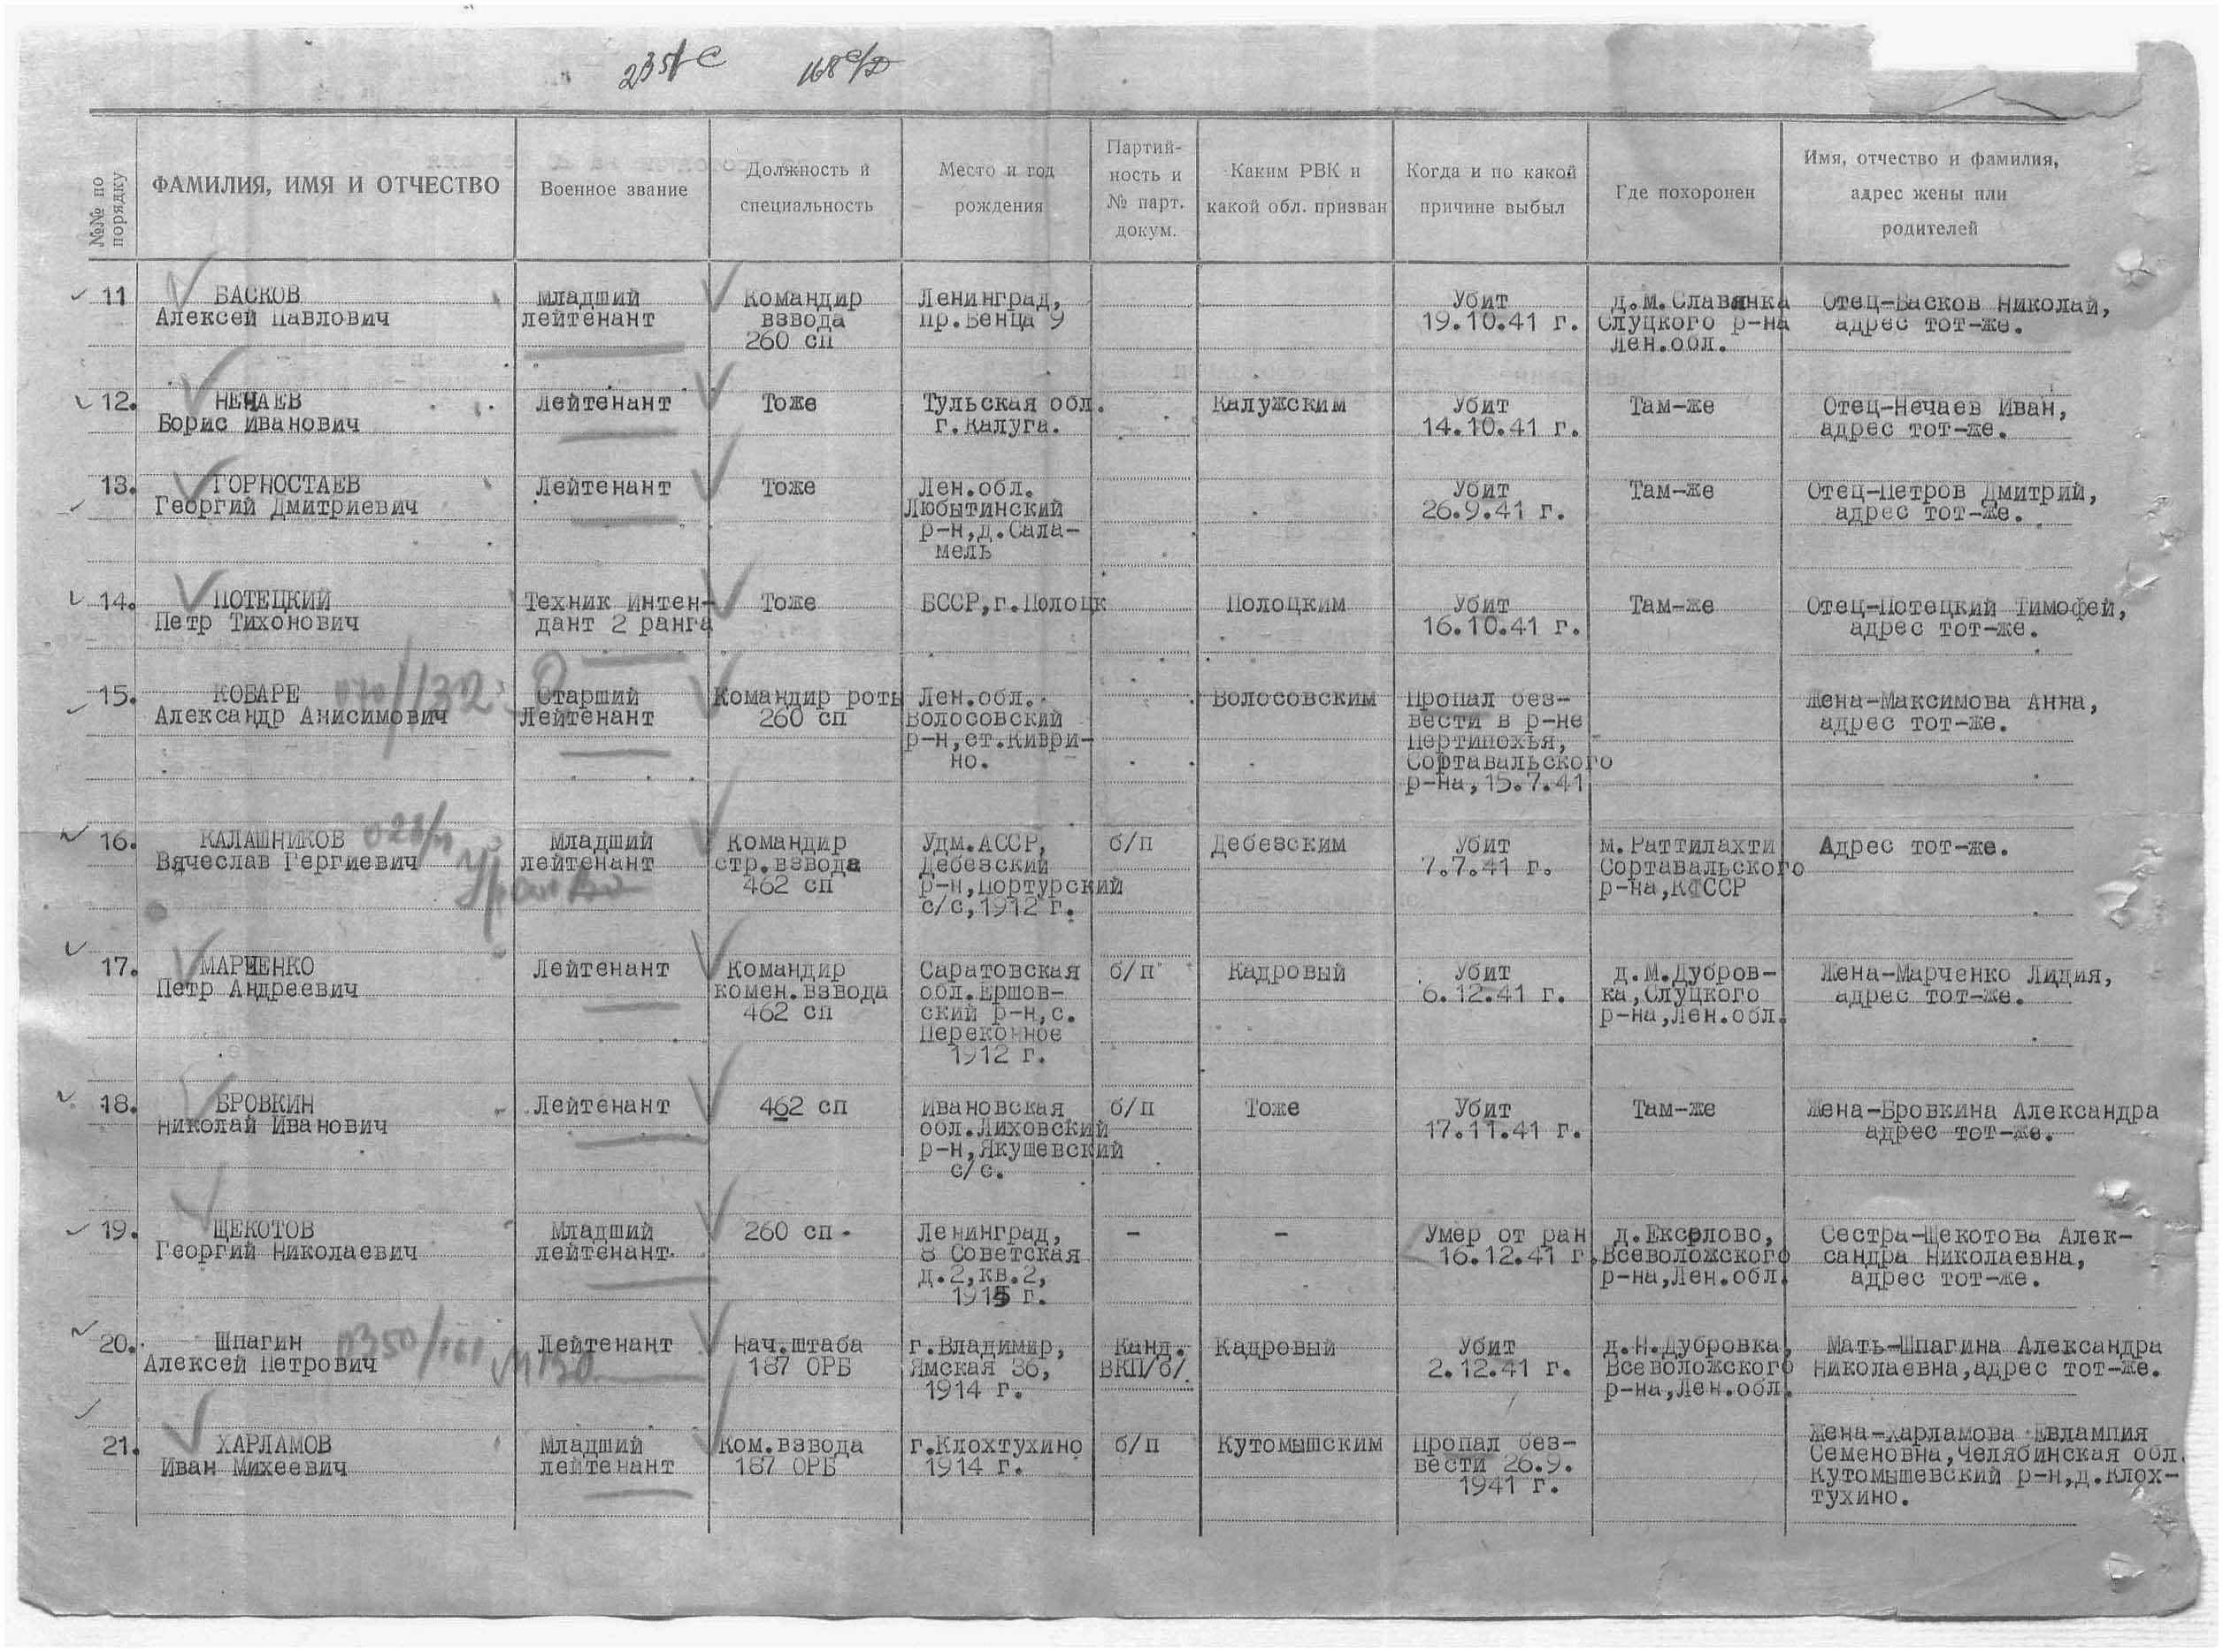 235/с 168 с/д
№№ по порядку
ФАМИЛИЯ, ИМЯ И ОТЧЕСТВО
Военное звание
Должность и
специальность
Место и год
рождения
Партий-
ность и
№ парт.
докум.
Каким РВК и
какой обл. призван
Когда и по какой
причине выбыл
Где похоронен
Имя, отчество и фамилия,
адрес жены или
родителей
11
БАСКОВ
Алексей Павлович
младший
лейтенант
Командир
взвода
260 сп
Ленинград,
пр.Бенца 9
Убит
19.10.41 г.
д.м.Славянка
Слуцкого р-на
Лен.обл.
Отец-Басков Николай,
адрес тот-же.
12.
НЕЧАЕВ
Борис Иванович
Лейтенант
Тоже
Тульская обл.
г.Калуга.
Калужским
Убит
14.10.41 г.
Там-же
Отец-Нечаев Иван,
адрес тот-же.
13.
ГОРНОСТАЕВ
Георгий Дмитриевич
Лейтенант
Тоже
Лен.обл.
Любытинский
р-н,д.Сала-
мель
Убит
26.9.41 г.
Там-же
Отец-Петров Дмитрий,
адрес тот-же.
14.
ПОТЕЦКИЙ
Петр Тихонович
Техник Интен-
дант 2 ранга
Тоже
БССР,г.Полоцк
Полоцким
Убит
16.10.41 г.
Там-же
Отец-Потецкий Тимофей,
адрес тот-же.
15.
КОВАРЕ
Александр Анисимович
Старший
Лейтенант
Командир роты
260 сп
Лен.обл.
Волосовский
р-н,ст.Киври-
но.
Волосовским
Пропал без-
вести в р-не
Пертипохья,
Сортавальского
р-на,15.7.41
Жена-Максимова Анна,
адрес тот-же.
16.
КАЛАШНИКОВ
Вячеслав Гергиевич
Младший
лейтенант
Командир
стр.взвода
462 сп
Удм.АССР,
Дебезский
р-н,Портурский
с/с,1912 г.
б/п
Дебезским
Убит
7.7.41 г.
м.Раттилахти
Сортавальского
р-на,КФССР
Адрес тот-же.
17.
МАРЧЕНКО
Петр Андреевич
Лейтенант
Командир
комен.взвода
462 сп
Саратовская
обл.Ершов-
ский р-н,с.
Перекопное
1912 г.
б/п
Кадровый
Убит
6.12.41 г.
д.М.Дубров-
ка,Слуцкого
р-на,Лен.обл.
Жена-Марченко Лидия,
адрес тот-же.
18.
БРОВКИН
Николай Иванович
Лейтенант
462 сп
Ивановская
обл.Лиховский
р-н,Якушевский
с/с.
б/п
Тоже
Убит
17.11.41 г.
Там-же
Жена-Бровкина Александра
адрес тот-же.
19.
ЩЕКОТОВ
Георгий Николаевич
Младший
лейтенант
260 сп
Ленинград,
8 Советская
д.2,кв.2,
1915 г.
-
-
Умер от ран
16.12.41 г.
д.Екселово,
Всеволожского
р-на,Лен.обл.
Сестра-Щекотова Алек-
сандра Николаевна,
адрес тот-же.
20.
Шпагин
Алексей Петрович
Лейтенант
Нач.штаба
187 ОРБ
г.Владимир,
Ямская 36,
1914 г.
Канд.
ВКП/б/
Кадровый
Убит
2.12.41 г.
д.Н.Дубровка,
Всеволожского
р-на,Лен.обл.
Мать-Шпагина Александра
Николаевна,адрес тот-же.
21.
ХАРЛАМОВ
Иван Михеевич
Младший
лейтенант
Ком.взвода
187 ОРБ
г.Клохтухино
1914 г.
б/п
Кутомышским
Пропал без-
вести 26.9.
1941 г.
Жена-Харламова Евлампия
Семеновна,Челябинская обл.
Кутомышевский р-н,д.Клох-
тухино.